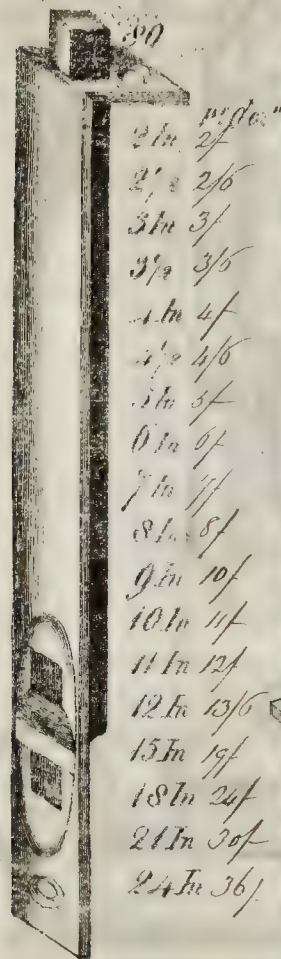 90
pr doz.n
2 In 2/
2 1/2 2/6
3 In 3/
3 1/2 3/6
4 In 4/
4 1/2 4/6
5 In 5/
6 In 6/
7 In 7/
8 In 8/
9 In 10/
10 In 11/
11 In 12/
12 In 13/6
15 In 19/
18 In 24/
21 In 30/
24 In 36/